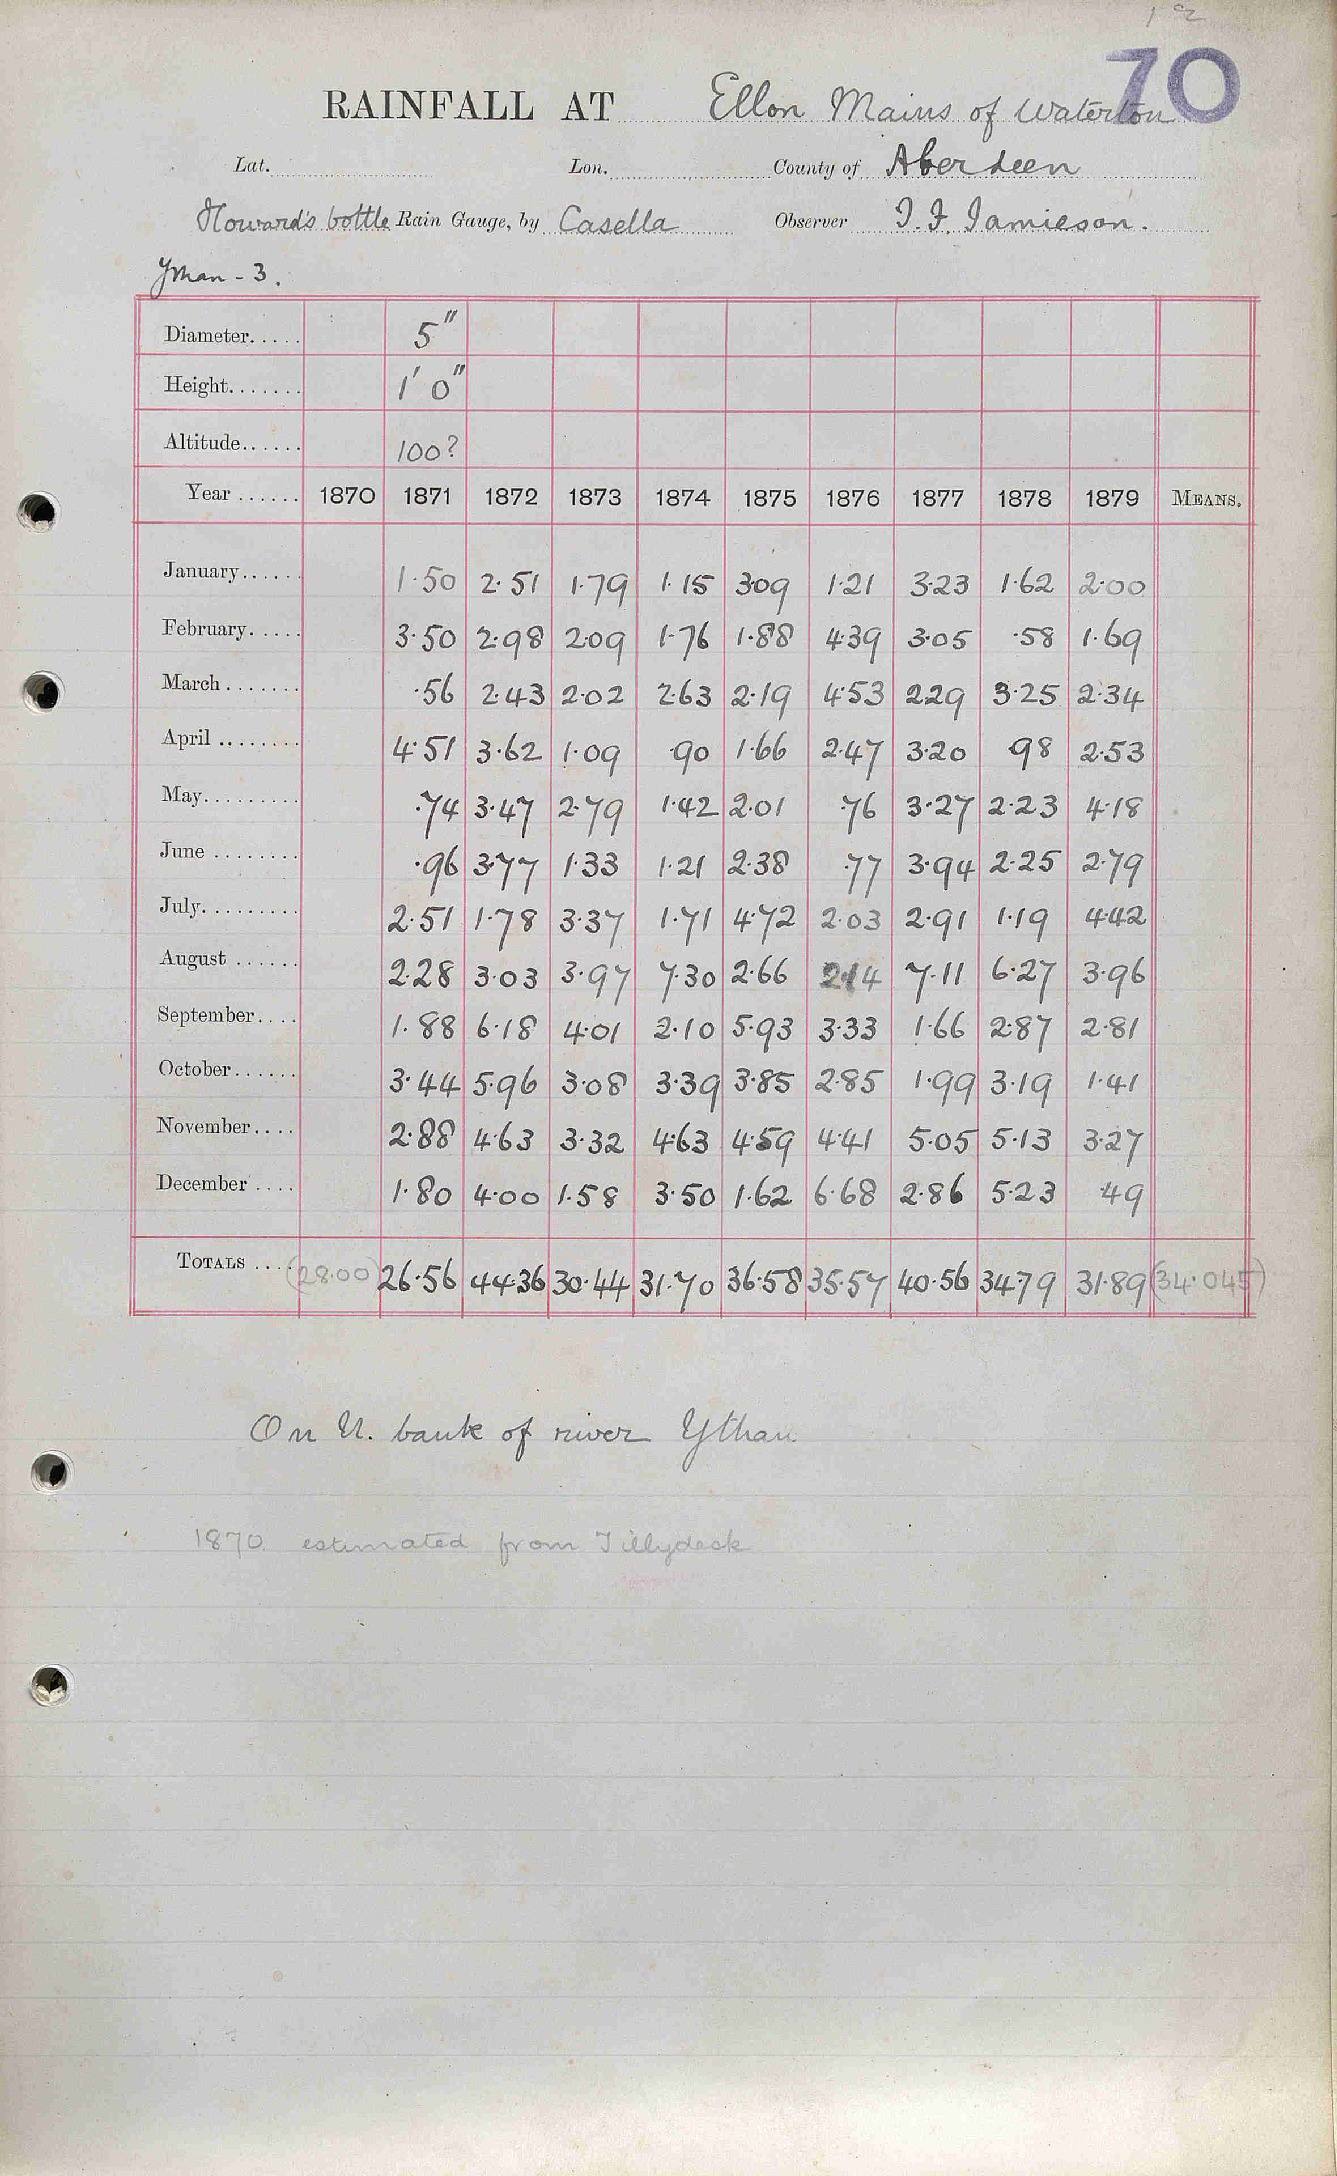 70
RAINFALL AT Ellon Mains of Waterton
Lat. Lon. County of Aberdeen
Howard's bottle Rain Gauge, by Casella Observer T. F. Jamieson.
Ythan - 3.
Diameter..... 5"
Height....... 1' 0"
Altitude...... 100?
Year ...... 1870 1871 1872 1873 1874 1875 1876 1877 1878 1879 MEANS.
January...... 1.50 2.51 1.79 1.15 3.09 1.21 3.23 1.62 2.00
February..... 3.50 2.98 2.09 1.76 1.88 4.39 3.05 .58 1.69
March ....... .56 2.43 2.02 2.63 2.19 4.53 2.29 3.25 2.34
April ........ 4.51 3.62 1.09 .90 1.66 2.47 3.20 .98 2.53
May......... .74 3.47 2.79 1.42 2.01 .76 3.27 2.23 4.18
June ........ .96 3.77 1.33 1.21 2.38 .77 3.94 2.25 2.79
July......... 2.51 1.78 3.37 1.71 4.72 2.03 2.91 1.19 4.42
August ...... 2.28 3.03 3.97 7.30 2.66 2.14 7.11 6.27 3.96
September.... 1.88 6.18 4.01 2.10 5.93 3.33 1.66 2.87 2.81
October...... 3.44 5.96 3.08 3.39 3.85 2.85 1.99 3.19 1.41
November.... 2.88 4.63 3.32 4.63 4.59 4.41 5.05 5.13 3.27
December .... 1.80 4.00 1.58 3.50 1.62 6.68 2.86 5.23 .49
TOTALS .... (28.00) 26.56 44.36 30.44 31.70 36.58 35.57 40.56 34.79 31.89 (34.045)
On N. bank of river Ythan
1870 estimated from Tillydesk